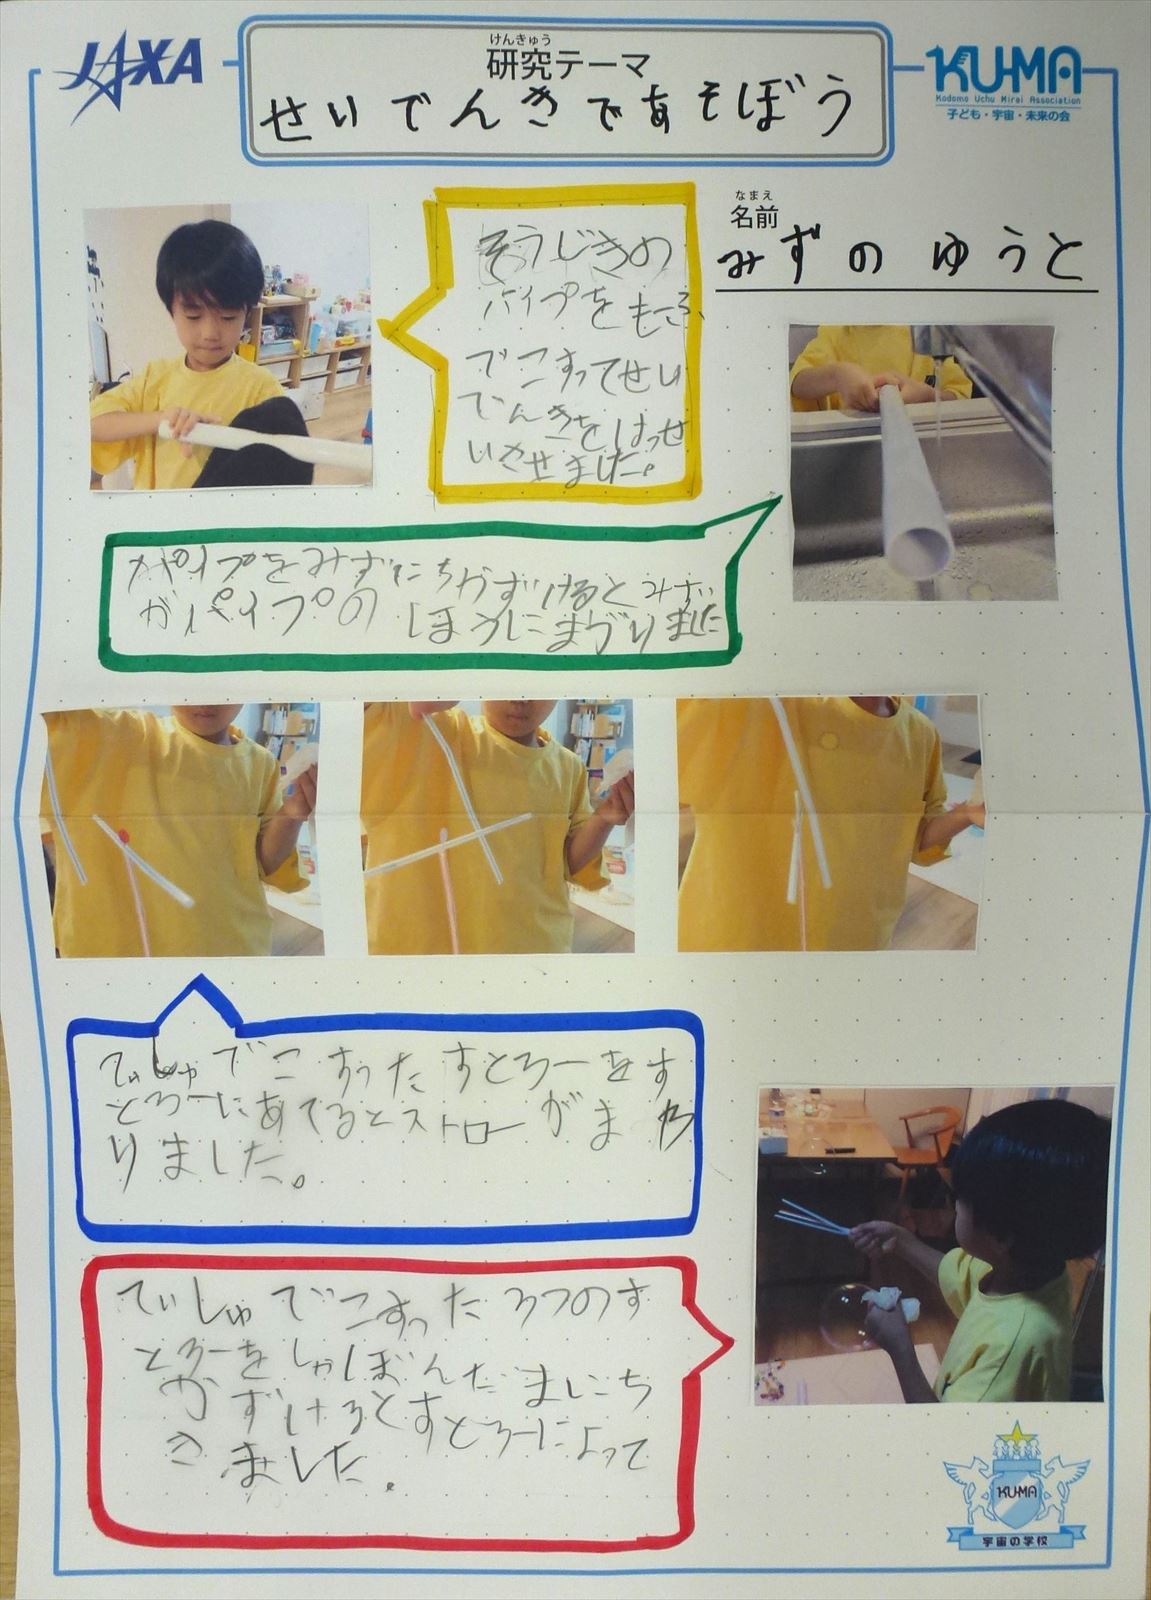 JAXA
けんきゅう
研究テーマ
せいでんきであそぼう
KU-MA
Kodomo Uchu Mirai Association
子ども・宇宙・未来の会
なまえ
名前
みずの ゆうと
そうじきの
パイプをもうふ
でこすってせい
でんきをはっせ
いさせました。
パイプをみずにちかずけるとみず
がパイプのほうにまがりました
てぃしゅでこすったすとろーをす
とろーにあてるとストローがまわ
りました。
てぃしゅでこすった3つのす
とろーをしゃぼんだまにち
かずけるとすとろーによって
きました.
KU-MA
宇宙の学校